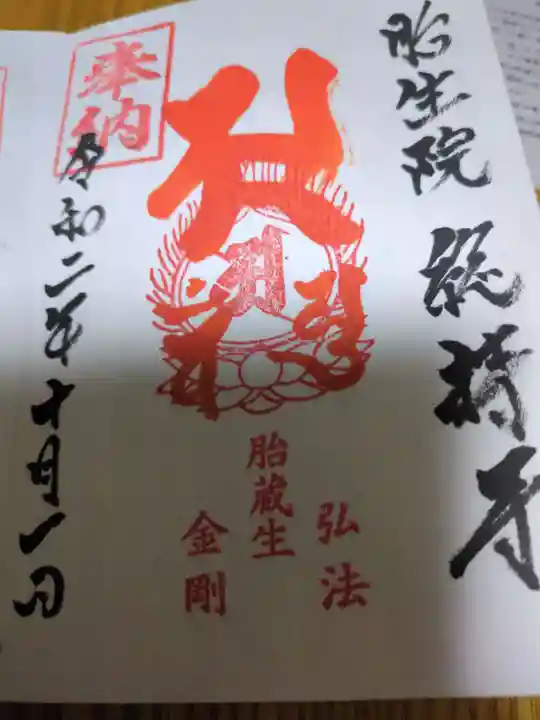 胎生院 総持寺
弘法
胎蔵生
金剛
奉納
令和二年十月一日